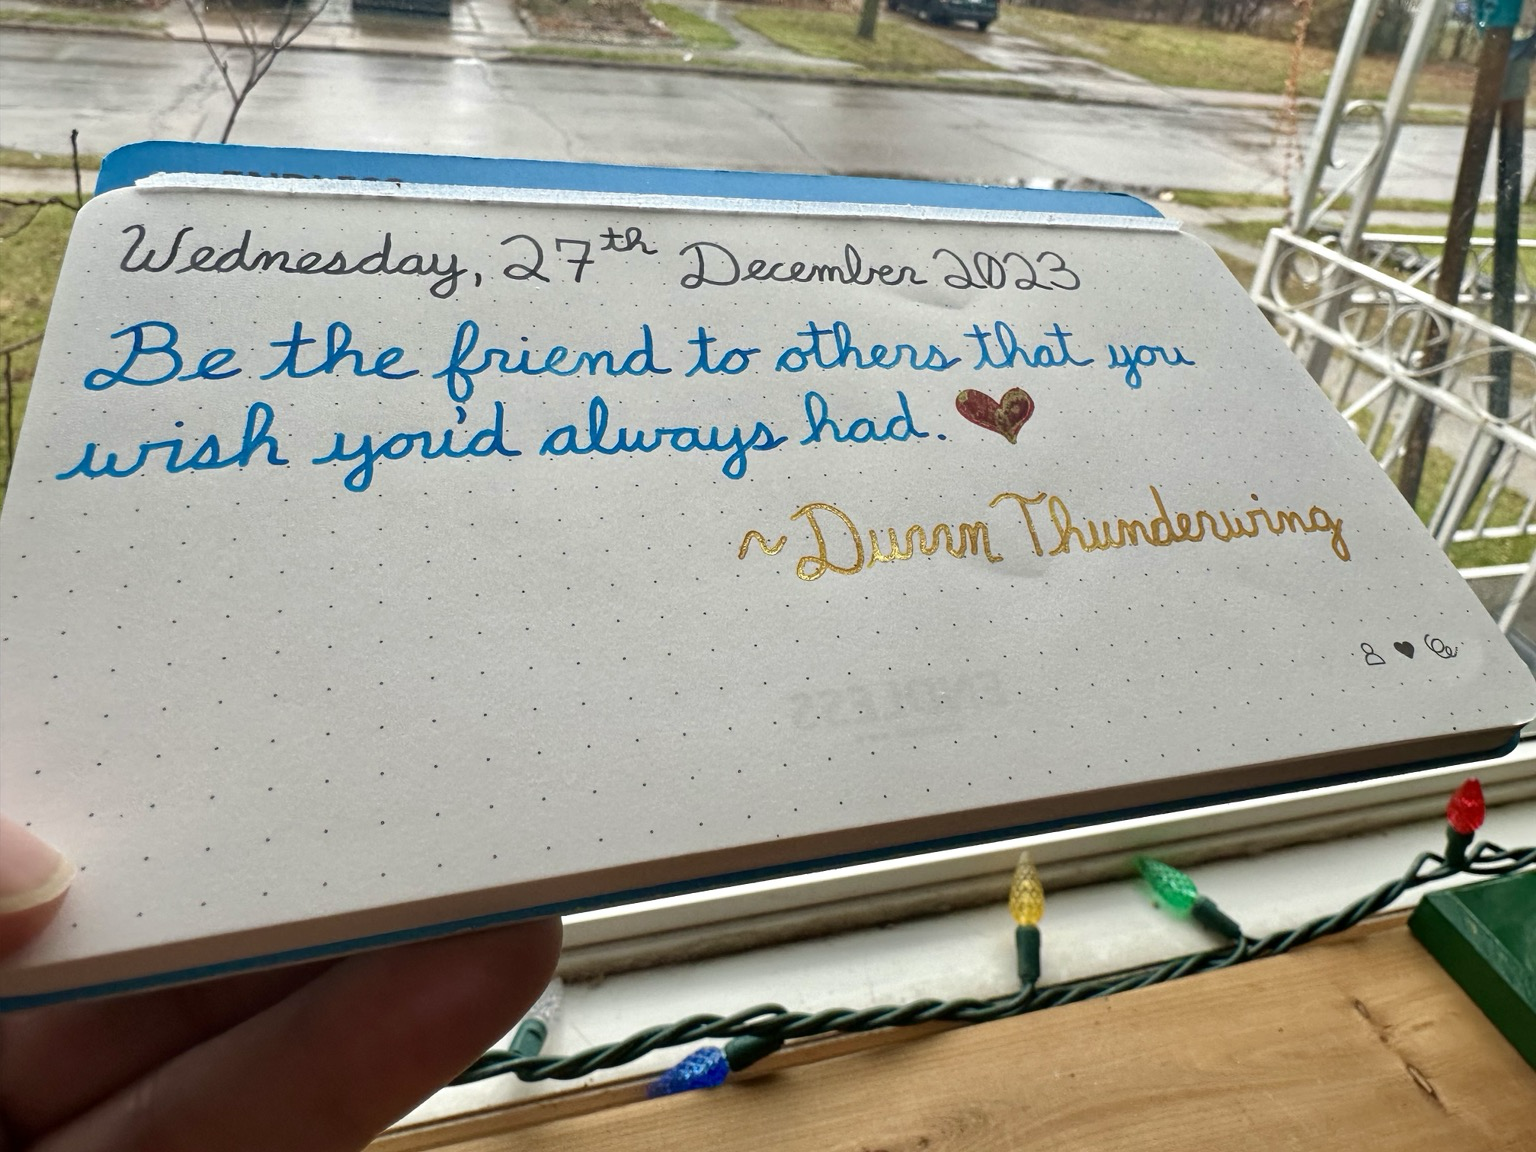 ENDLESS
Wednesday, 27th December 2023
Be the friend to others that you
wish you'd always had. ♥
~Durrn Thunderwing
ENDLESS